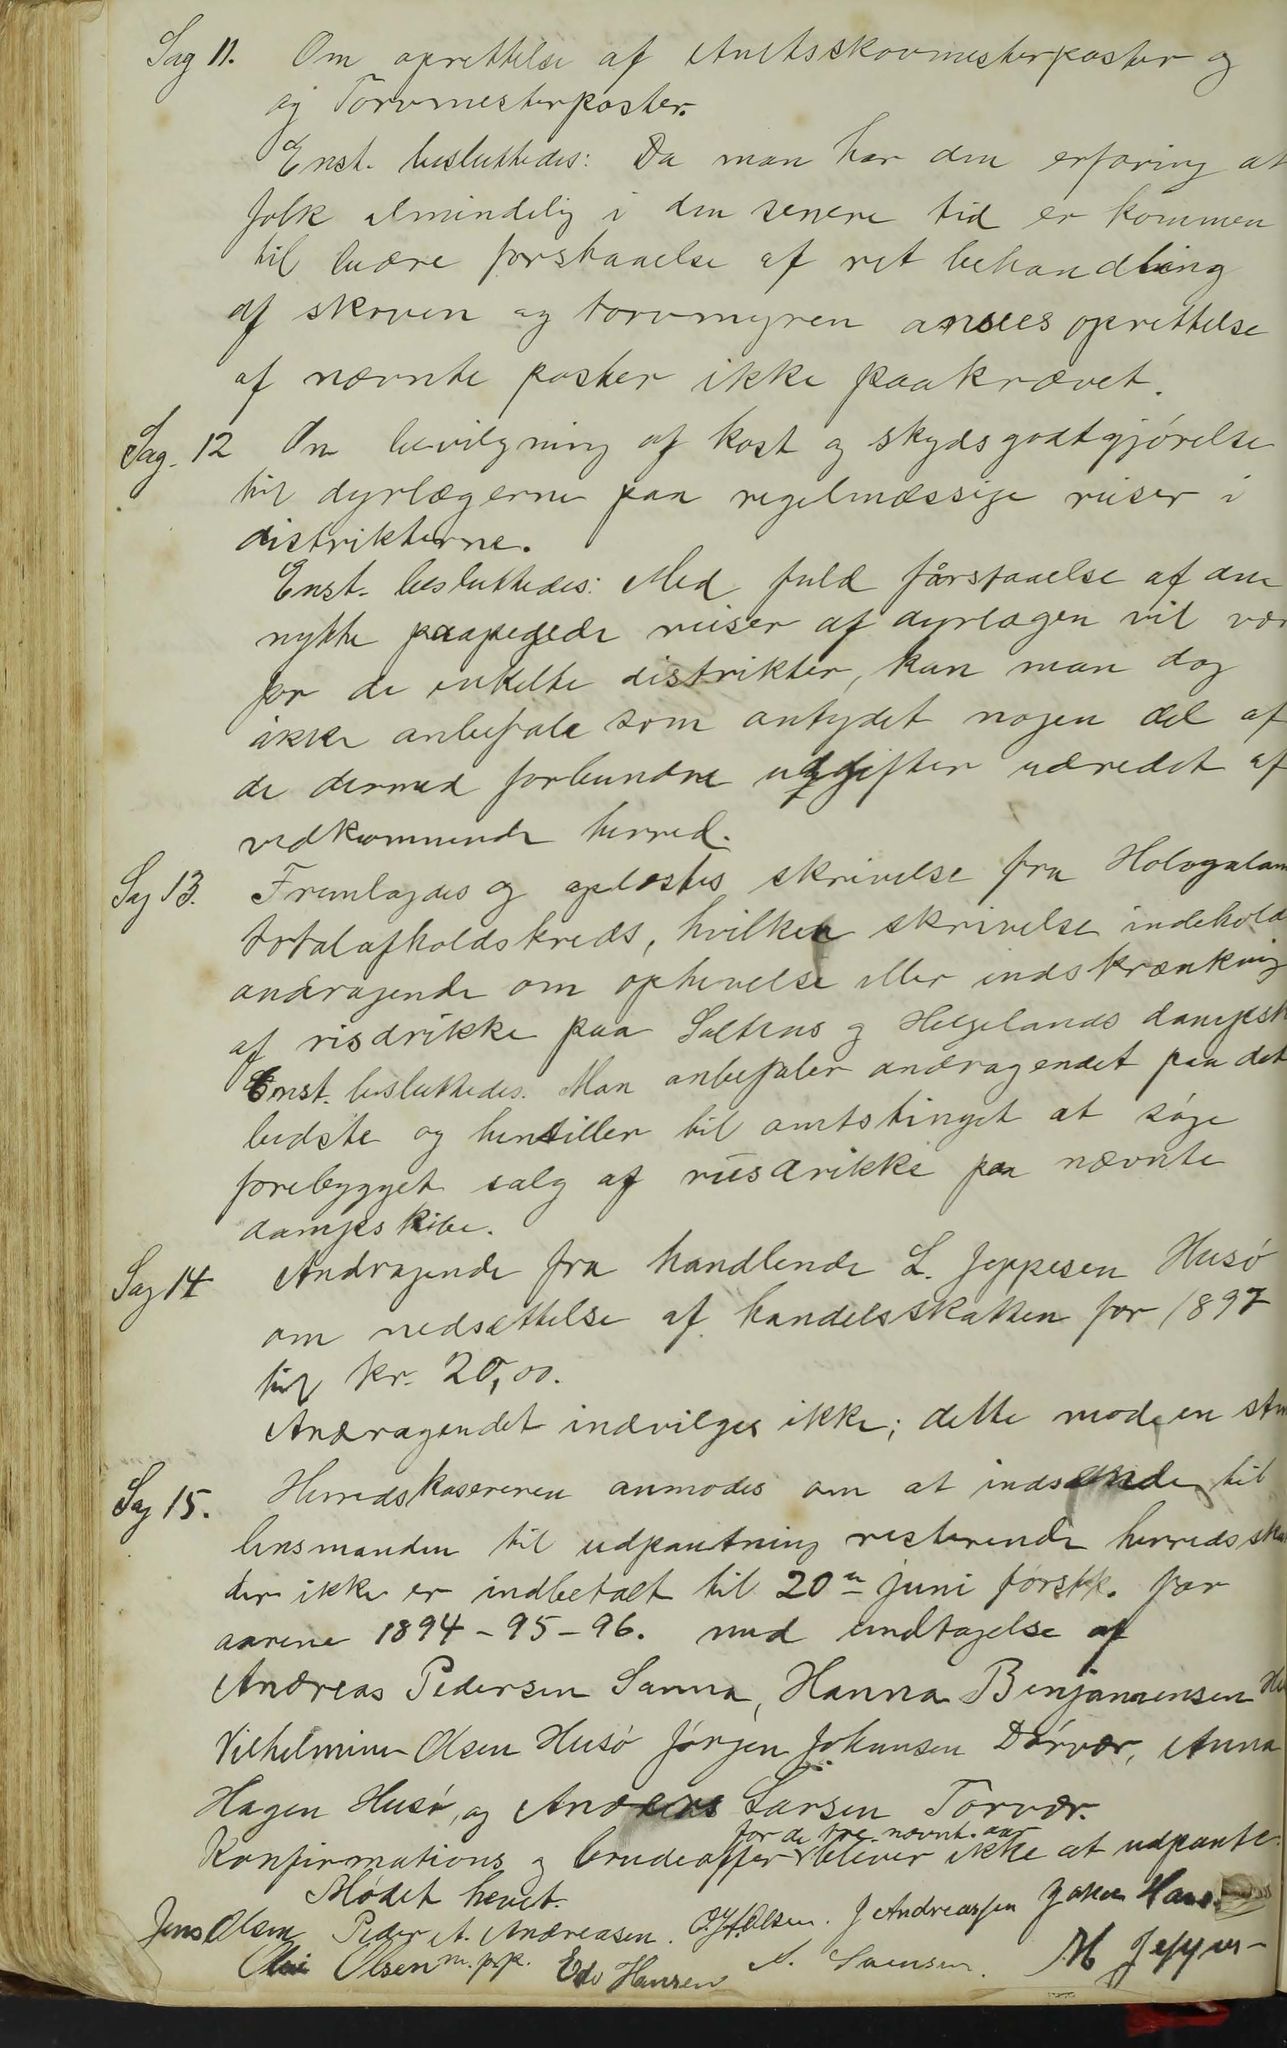 Sag 11. Om oprettelse af Amtsskovmesterposter og
og Torvmesterposter.
Enst. besluttedes: Da man har den erfaring at
folk almindelig i den senere tid er kommen
til bedre forstaaelse af ret behandling
af skoven og torvmyren ansees oprettelse
af nævnte poster ikke paakrævet.
Sag. 12 Om bevilgning af kost og skydsgodtgjørelse
til dyrlægerne paa regelmæssige reiser i
distrikterne.
Enst. besluttedes: Med fuld forstaaelse af den
nytte paapegede reiser af dyrlægen vil vær
for de enkelte distrikter, kan man dog
ikke anbefale som antydet nogen del af
de dermed forbundne udgifter udredet af
vedkommende herred.
Sag 13. Fremlagdes og oplæstes skrivelse fra
totalafholdskreds, hvilken skrivelse indehold
andragende om ophevelse eller indskrænkning
af risdrikke paa Saltens og Helgelands dampsk
Enst. besluttedes. Man anbefaler andragendet paa det
bedste og henstiller til amtstinget at søge
forebygget salg af rusdrikke paa nævnte
dampskibe.
Sag 14 Andragende fra handlende L. Jeppesen Husø
om nedsættelse af handelsskatten for 1897
til kr. 20,00.
Andragendet indvilges ikke; dette mod en
Sag 15. Herredskasereren anmodes om at indsænde til
lensmanden til udpantning resterende herredsska
der ikke er indbetalt til 20de juni førstk. for
aarene 1894-95-96. med undtagelse af
Andreas Pedersen Sanna, Hanna Benjaminsen
Vilhelmine Olsen Husø Jørgen Johansen Dørvær, Anna
Hagen Husø, og Anders Larsen Torvær.
for de tre nævnt. aar
Konfirmations og brudeoffer bliver ikke at udpante.
Mødet hævet.
Jens Olsen Peder A. Andreasen. Olsen. J Andreassen Johan Hans
Olsen m.p.p. Edv Hansen A. Svensen. M Jeppes